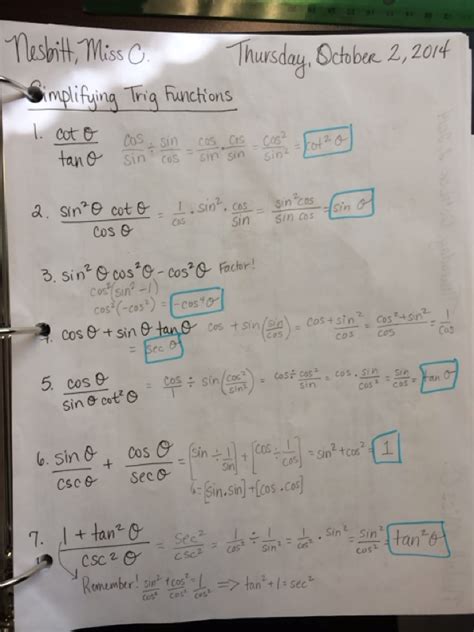 Nesbitt, Miss C. Thursday, October 2, 2014
Simplifying Trig Functions
1. cot θ / tan θ cos/sin ÷ sin/cos = cos/sin · cos/sin = cos²/sin² = cot² θ
2. sin² θ cot θ / cos θ = 1/cos · sin² · cos/sin = sin² cos / sin cos = sin θ
3. sin² θ cos² θ - cos² θ Factor!
cos² (sin² - 1)
cos² (-cos²) = -cos⁴ θ
4. cos θ + sin θ tan θ cos + sin (sin/cos) = cos + sin²/cos = cos² + sin² / cos = 1/cos
= sec θ
5. cos θ / sin θ cot² θ = cos/1 ÷ sin (cos²/sin²) = cos ÷ cos²/sin = cos · sin/cos² = sin/cos = tan θ
6. sin θ / csc θ + cos θ / sec θ = [sin ÷ 1/sin] + [cos ÷ 1/cos] = sin² + cos² = 1
= [sin · sin] + [cos · cos]
7. 1 + tan² θ / csc² θ = sec²/csc² = 1/cos² ÷ 1/sin² = 1/cos² · sin² = sin²/cos² = tan² θ
Remember! sin²/cos² + cos²/cos² = 1/cos² ⇒ tan² + 1 = sec²